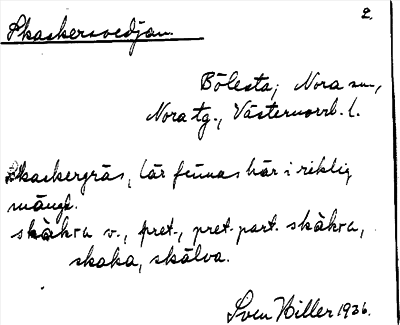 2.
Skaakersvedjan.
Bölesta; Nora sn.,
Nora tg., Västernorrl. l.
Skaakergräs, lär finnas här i riklig
mängd.
skàkra v., pret., pret. part. skàkra,
skaka, skälva.
Sven Hiller 1936.